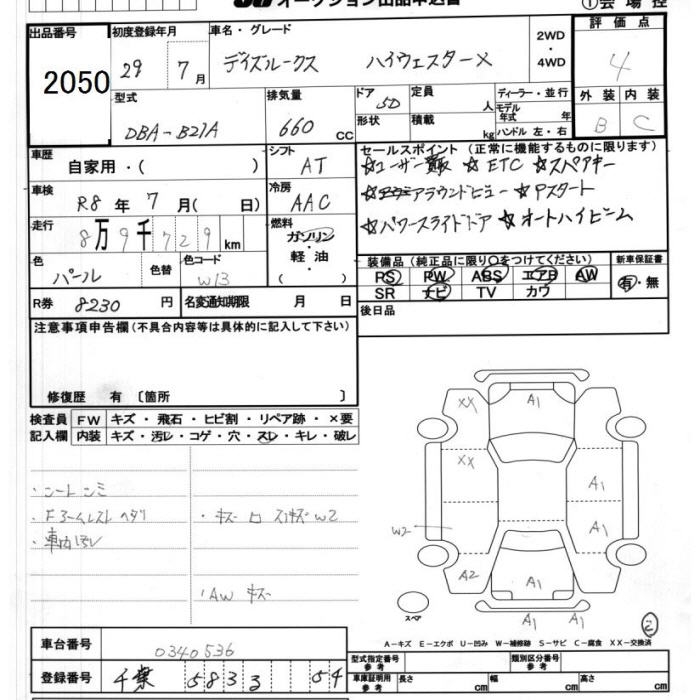 オークション出品申込書
①会場控
出品番号 2050
初度登録年月 29 7月
車名・グレード デイズルークス ハイウェスターX
2WD・4WD
評価点 4
型式 DBA-B21A
排気量 660 cc
ドア 5D 定員 人
形状 積載 kg
ディーラー・並行
モデル年式 年
ハンドル 左・右
外装 内装
B C
車歴 自家用・( )
シフト AT
セールスポイント(正常に機能するものに限ります)
☆ユーザー買取 ☆ETC ☆スペアキー
☆アラウンドビュー ☆Pスタート
☆パワースライドドア ☆オートハイビーム
車検 R8年 7月( 日)
冷房 AAC
走行 8万9千729km
燃料 ガソリン・軽油・( )
色 パール 色替
色コード W13
装備品(純正品に限り○をつけてください) 新車保証書
PS PW ABS エアB AW 有・無
SR ナビ TV カワ
R券 8230円 名変通知期限 月 日
後日品
注意事項申告欄(不具合内容等は具体的に記入して下さい)
修復歴 有〔箇所 〕
検査員記入欄
FW キズ・飛石・ヒビ割・リペア跡・×要
内装 キズ・汚レ・コゲ・穴・スレ・キレ・破レ
・シートシミ
・Fアームレストヘタリ
・車内汚レ
・キズ ロ スリキズ W2
・AW キズ
XX A1
XX A1
W2 A1
A2 A1
A1 A1
スペア
A-キズ E-エクボ U-凹み W-補修跡 S-サビ C-腐食 XX-交換済
車台番号 0340536
登録番号 千葉 5833 54
型式指定番号 参考
類別区分番号 参考
車庫証明用 参考 長さ cm 幅 cm 高さ cm